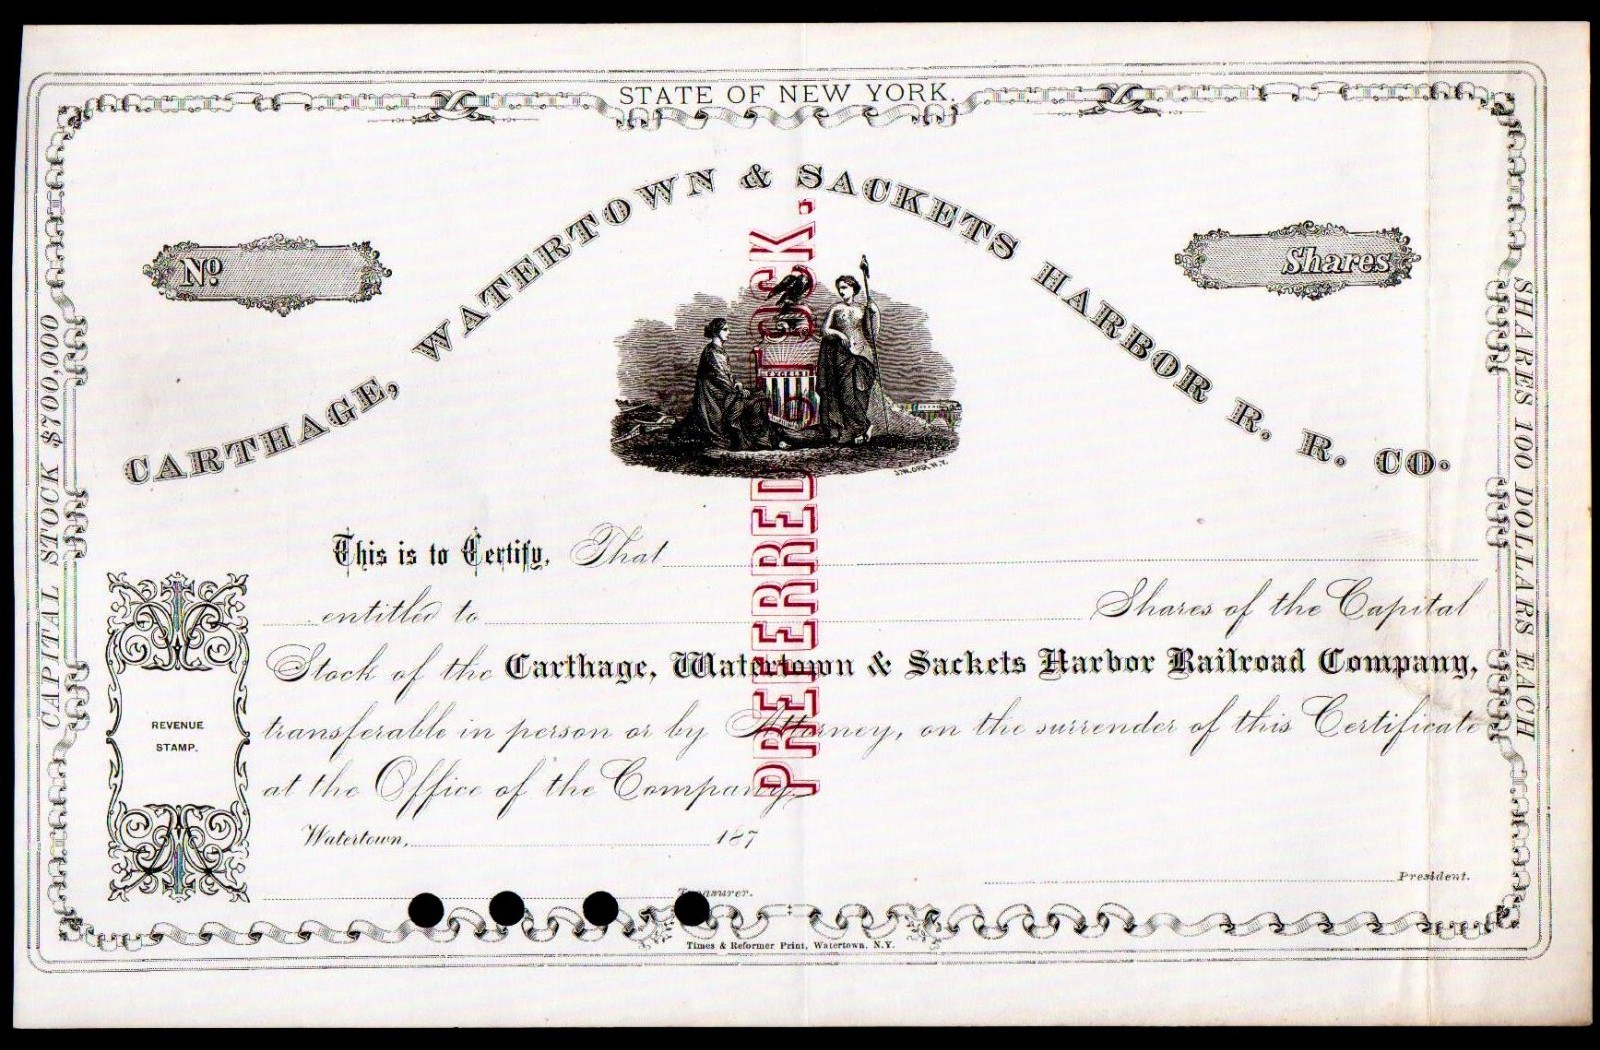 STATE OF NEW YORK.
CARTHAGE, WATERTOWN & SACKETS HARBOR R. R. CO.
No.
Shares
EXCELSI
J.W. ORR N.Y.
CAPITAL STOCK $700,000
SHARES 100 DOLLARS EACH
PREFERRED STOCK.
This is to Certify, That
entitled to Shares of the Capital
Stock of the Carthage, Watertown & Sackets Harbor Railroad Company,
transferable in person or by Attorney, on the surrender of this Certificate
at the Office of the Company.
REVENUE
STAMP.
Watertown, 187
Treasurer.
President.
Times & Reformer Print, Watertown, N.Y.